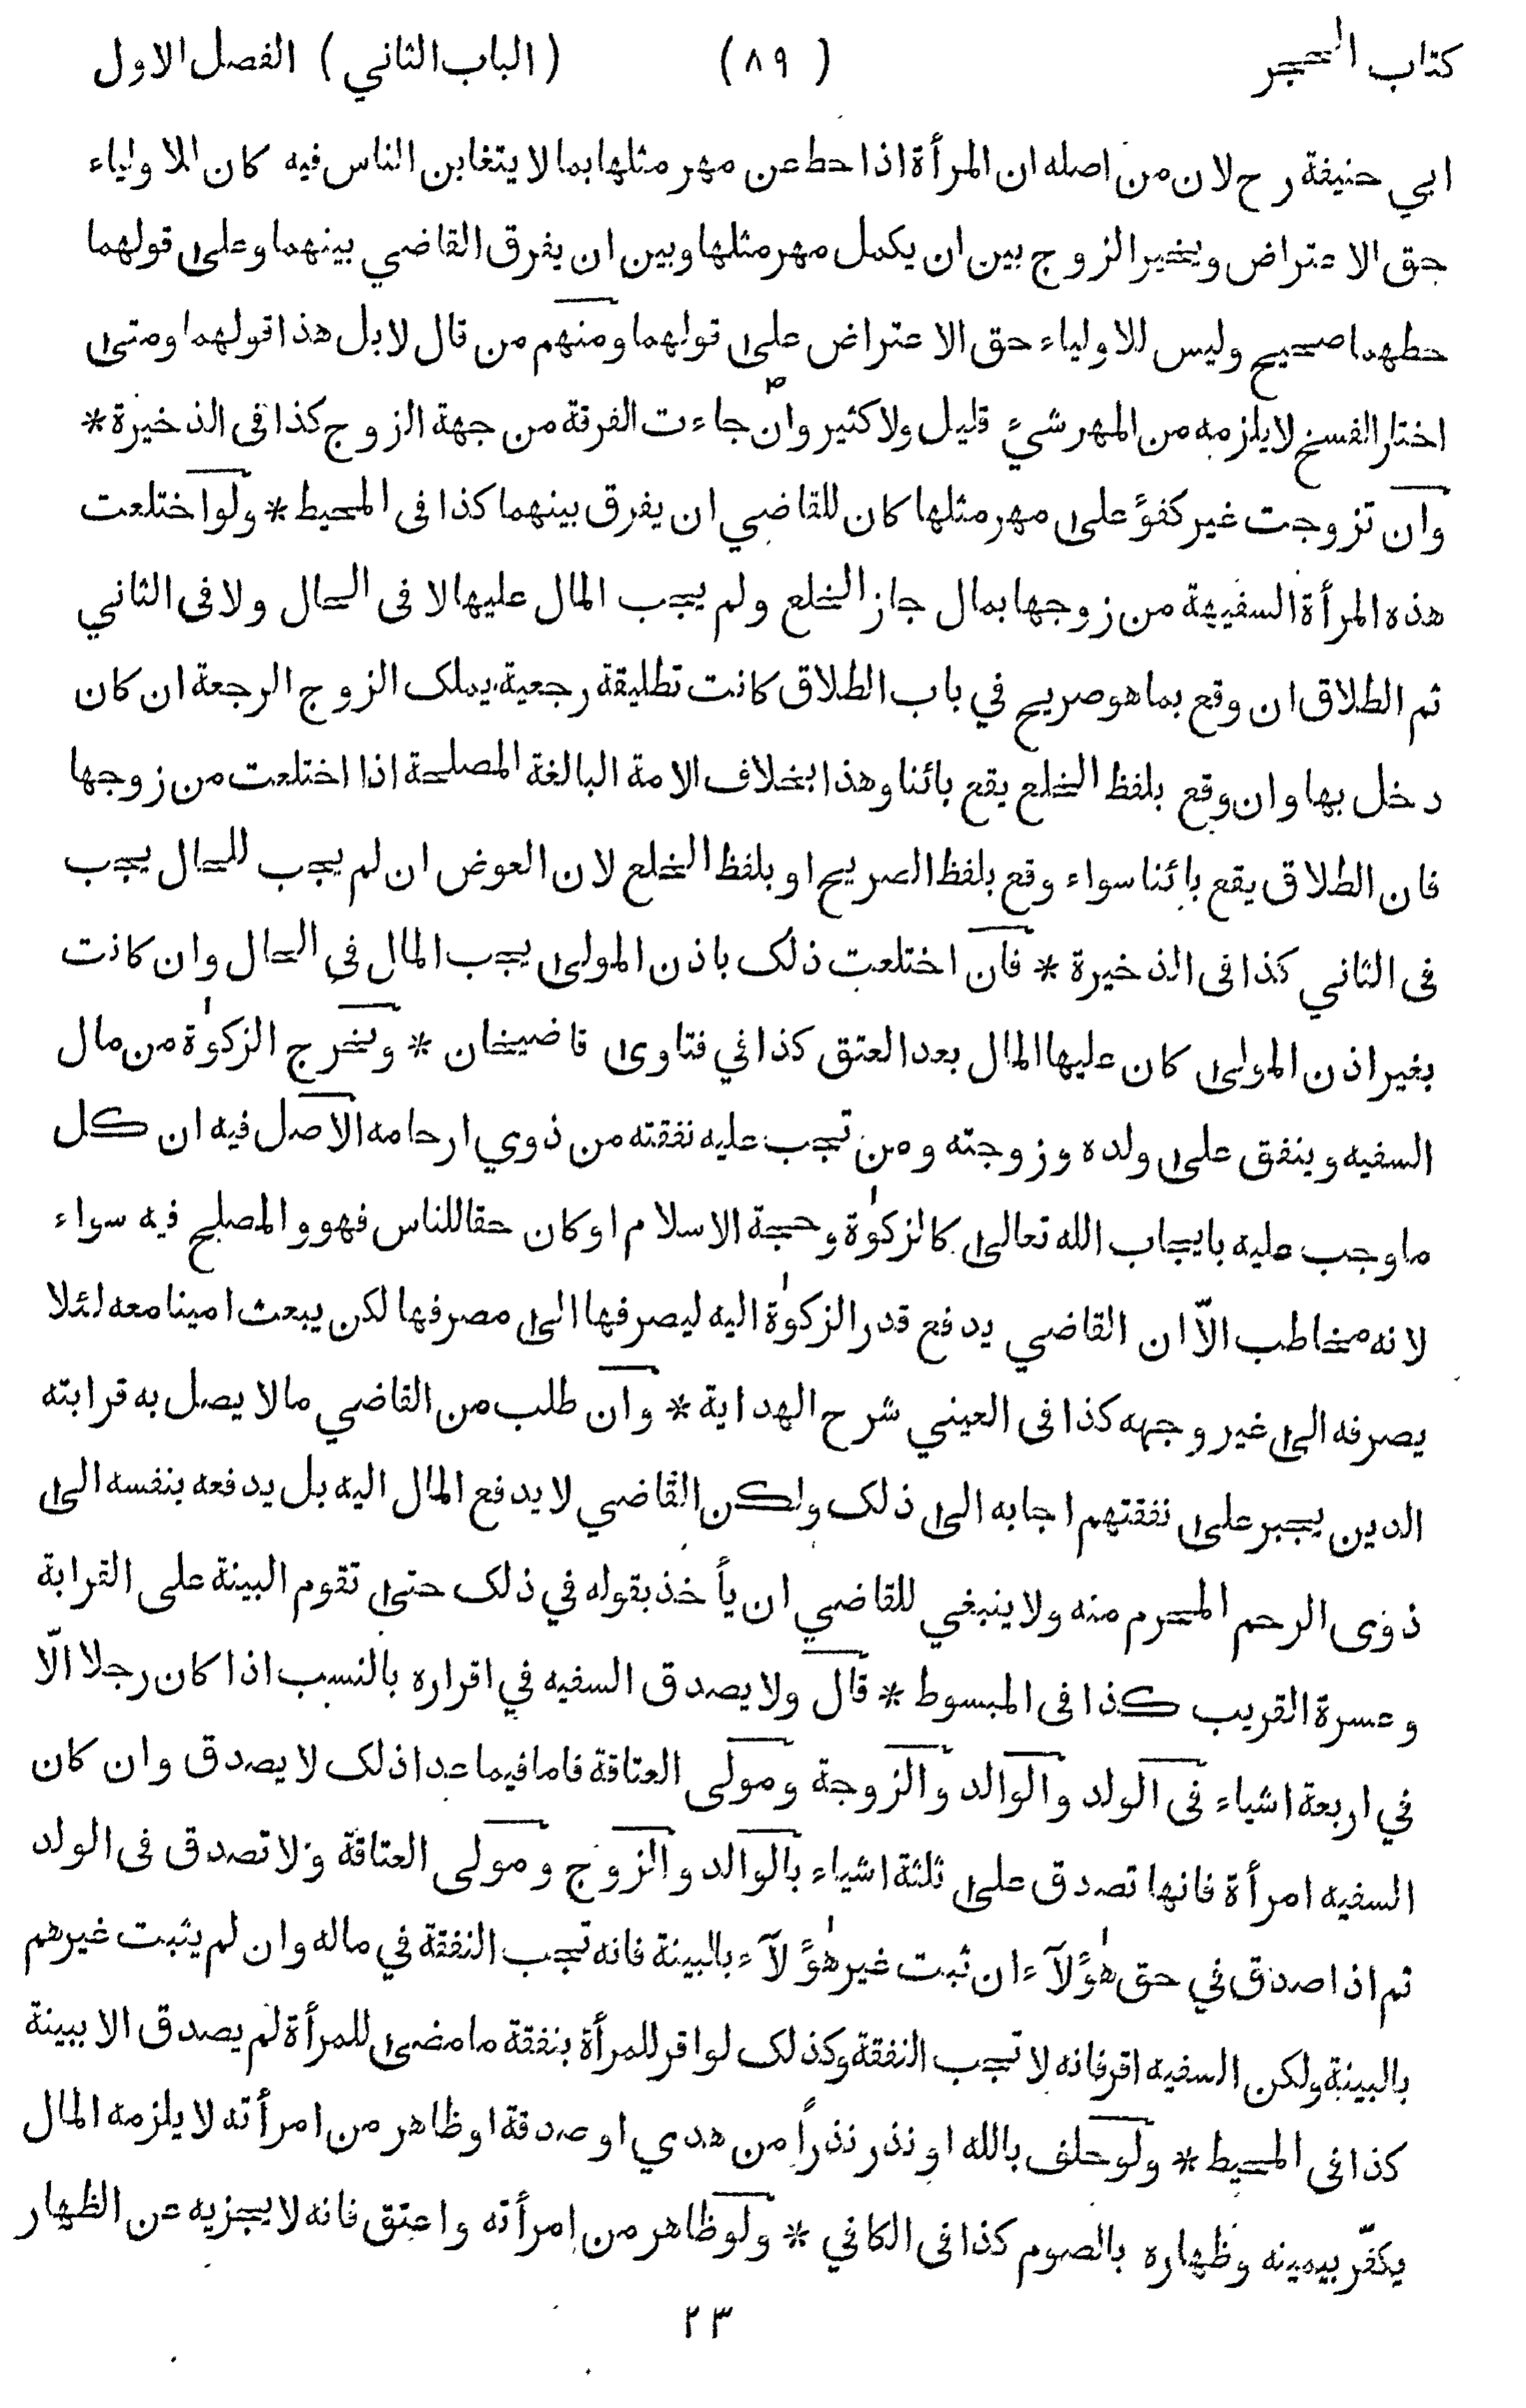 كتاب الحجر (٨٩) (الباب الثاني) الفصل الاول
ابي حنيفة رح لان من اصله ان المرأة اذا حط عن مهر مثلها بما لا يتغابن الناس فيه كان للاولياء
حق الاعتراض ويخير الزوج بين ان يكمل مهر مثلها وبين ان يفرق القاضي بينهما وعلى قولهما
حطهما صحيح وليس للاولياء حق الاعتراض على قولهما ومنهم من قال لا بل هذا قولهما ومتى
اختار الفسخ لا يلزمه من المهر شيء قليل ولا كثير وان جاءت الفرقة من جهة الزوج كذا فى الذخيرة *
وان تزوجت غير كفؤ على مهر مثلها كان للقاضي ان يفرق بينهما كذا فى المحيط * ولو اختلعت
هذه المرأة السفيهة من زوجها بمال جاز الخلع ولم يجب المال عليها لا فى الحال ولا فى الثاني
ثم الطلاق ان وقع بما هو صريح في باب الطلاق كانت تطليقة رجعية يملك الزوج الرجعة ان كان
دخل بها وان وقع بلفظ الخلع يقع بائنا وهذا بخلاف الامة البالغة المصلحة اذا اختلعت من زوجها
فان الطلاق يقع بائنا سواء وقع بلفظ الصريح او بلفظ الخلع لان العوض ان لم يجب للحال يجب
فى الثاني كذا فى الذخيرة * فان اختلعت ذلك باذن المولى يجب المال في الحال وان كانت
بغير اذن المولى كان عليها المال بعد العتق كذا في فتاوى قاضيخان * ويخرج الزكوٰة من مال
السفيه وينفق على ولده وزوجته ومن تجب عليه نفقته من ذوي ارحامه الاصل فيه ان كل
ما وجب عليه بايجاب الله تعالى كالزكوٰة وحجة الاسلام او كان حقا للناس فهو والمصلح فيه سواء
لانه مخاطب الّا ان القاضي يدفع قدر الزكوٰة اليه ليصرفها الى مصرفها لكن يبعث امينا معه لئلا
يصرفه الى غير وجهه كذا فى العيني شرح الهداية * وان طلب من القاضي مالا يصل به قرابته
الدين يجبر على نفقتهم اجابه الى ذلك ولكن القاضي لا يدفع المال اليه بل يدفعه بنفسه الى
ذوى الرحم المحرم منه ولا ينبغي للقاضي ان يأخذ بقوله في ذلك حتى تقوم البينة على القرابة
وعسرة القريب كذا فى المبسوط * قال ولا يصدق السفيه في اقراره بالنسب اذا كان رجلا الّا
في اربعة اشياء فى الولد والوالد والزوجة ومولى العتاقة فاما فيما عدا ذلك لا يصدق وان كان
السفيه امرأة فانها تصدق على ثلثة اشياء بالوالد والزوج ومولى العتاقة ولا تصدق فى الولد
ثم اذا صدق في حق هٰؤلآء ان ثبت غير هٰؤلآء بالبينة فانه تجب النفقة في ماله وان لم يثبت غيرهم
بالبينة ولكن السفيه اقر فانه لا تجب النفقة وكذلك لو اقر للمرأة بنفقة ما مضى للمرأة لم يصدق الا ببينة
كذا فى المحيط * ولو حلف بالله او نذر نذراً من هدي او صدقة او ظاهر من امرأته لا يلزمه المال
يكفّر بيمينه وظهاره بالصوم كذا فى الكافي * ولو ظاهر من امرأته واعتق فانه لا يجزيه عن الظهار
٢٣